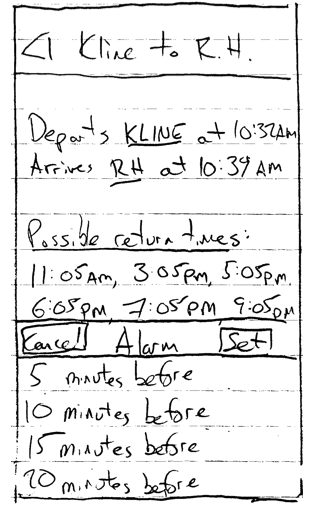 <| Kline to R.H.
Departs KLINE at 10:32AM
Arrives RH at 10:39 AM
Possible return times:
11:05AM, 3:05pm, 5:05pm.
6:05pm, 7:05pm 9:05pm
Kancel Alarm Set
5 minutes before
10 minutes before
15 minutes before
20 minutes before